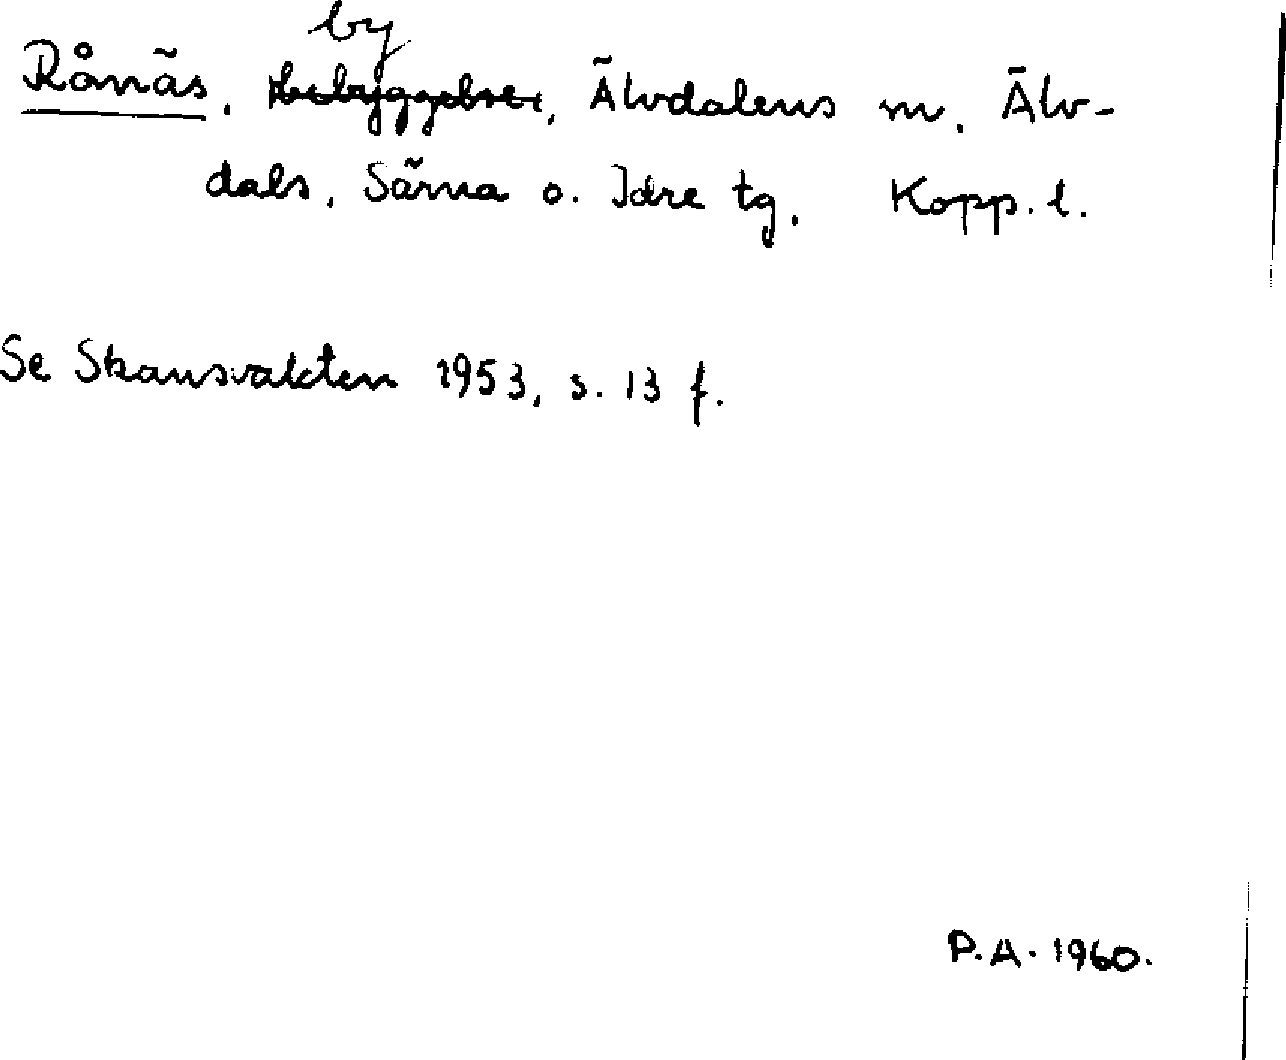 by
Rånäs, bebyggelse, Älvdalens m. Älv-
dals, Särna o. Idre tg. Kopp. l.
Se Skansvakten 1953, s. 13 f.
P.A. 1960.